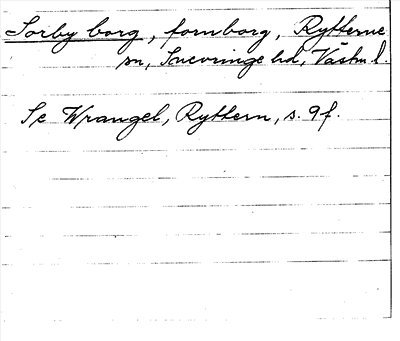 Sörby borg, fornborg, Rytterne
sn, Snevringe hd, Västm. l.
Se Wrangel, Ryttern, s. 9 f.